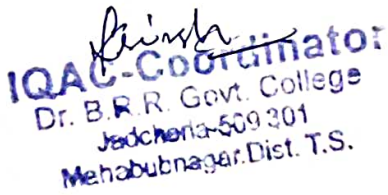 IQAC-Coordinator
Dr. B.R.R. Govt. College
Jadcherla-509301
Mahabubnagar.Dist. T.S.